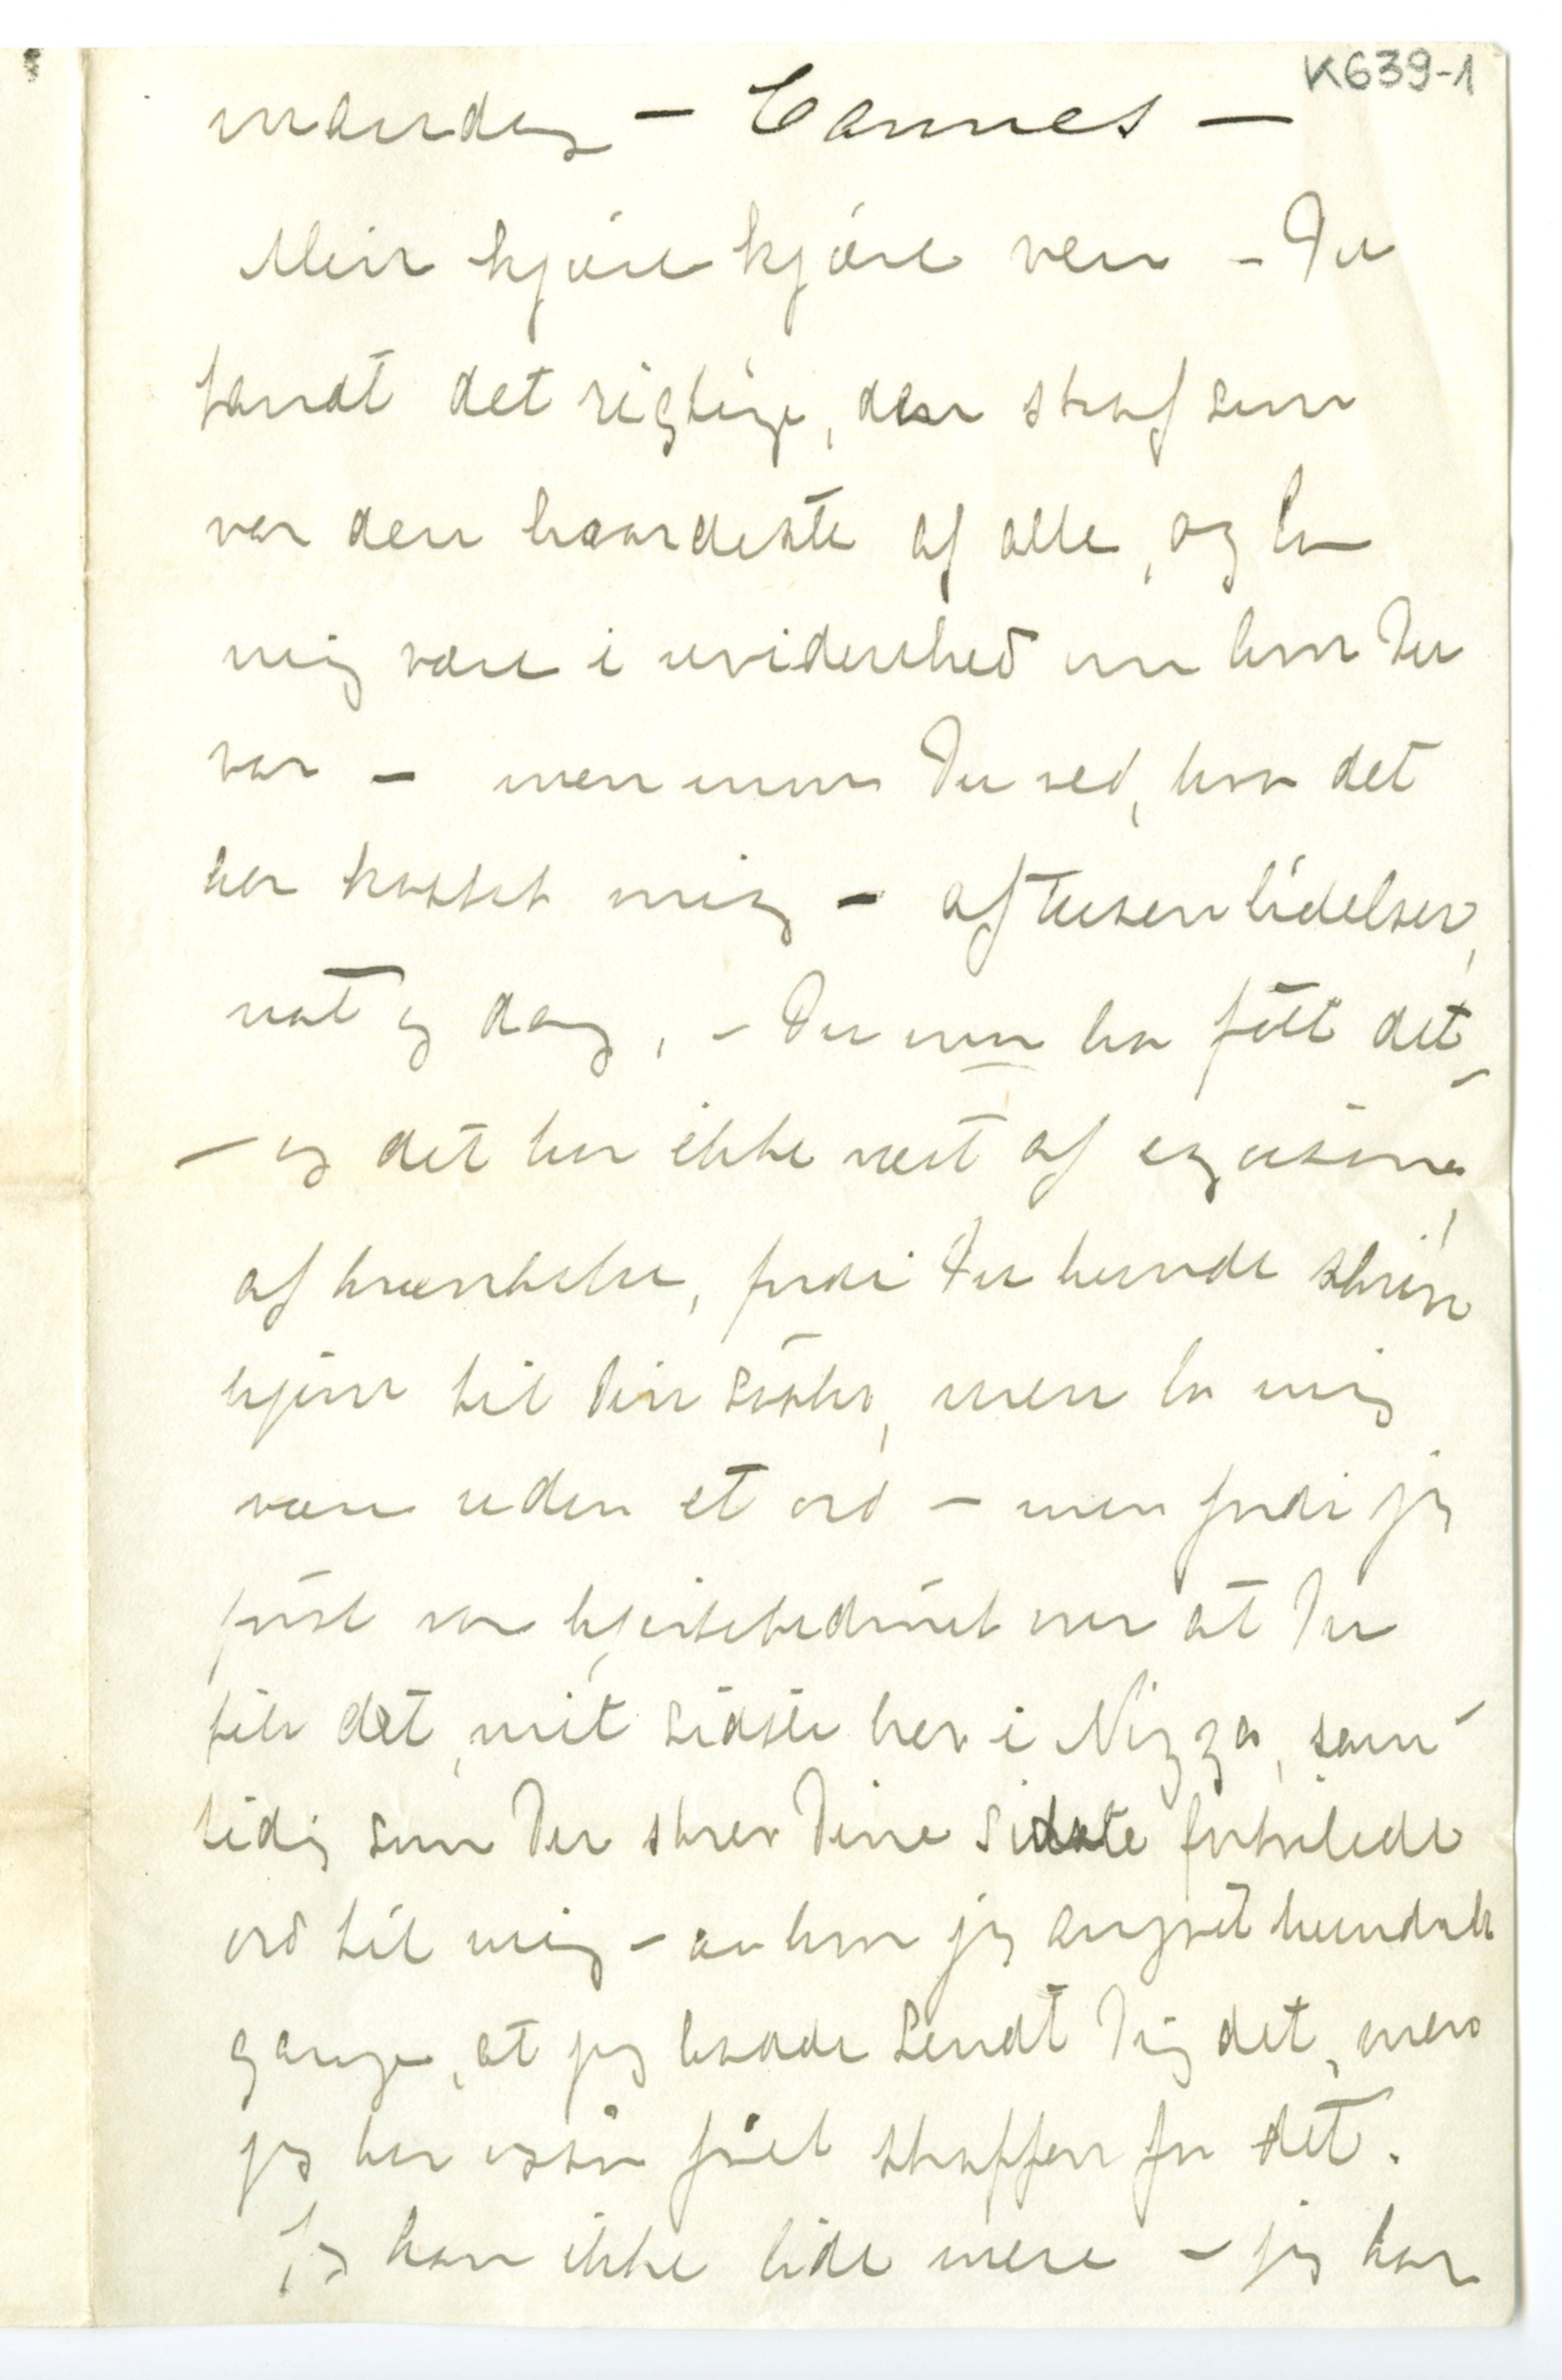 K639-1
mandag – Cannes –
Min kjære kjære ven – Du
fandt det rigtige, den straf som
var den haardeste af alle, og la
mig være i uvidenhed om hvor Du
var – men om Du ved, hva det
har kostet mig – af tusen lidelser,
nat og dag, – Du må ha følt det –
– og det har ikke vært af egoisme,
af krænkelse, fordi Du kunde skrive
hjem til din søster, men la mig
være uden et ord – men fordi jeg
først var hjertebedrøvet over at Du
fik det, mit sidste brev i Nizza, sam-
tidig som Du skrev Dine sidste fortvilede
ord til mig – å hvor jeg angret hundrede
gange, at jeg havde sendt Dig det, men
jeg har også fåt straffen for det.
Jeg kan ikke lide mere – jeg har